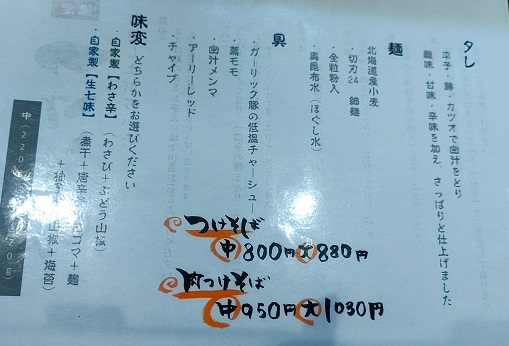 タレ
平子・鯵・カツオで出汁をとり
酸味・甘味・辛味を加え、さっぱりと仕上げました
麺
北海道産小麦
・切刃24 細麺
・全粒粉入
・真昆布水（ほぐし水）
具
・ガーリック豚の低温チャーシュー
・蒸モモ
・出汁メンマ
・アーリーレッド
・チャイブ
味変 どちらかをお選びください
・自家製【わさ辛】（わさび＋ぶどう山椒）
・自家製【生七味】（煮干＋唐辛
ゴマ＋麹
山椒＋海苔）
中（220
つけそば
中800円 大880円
肉つけそば
中950円 大1030円